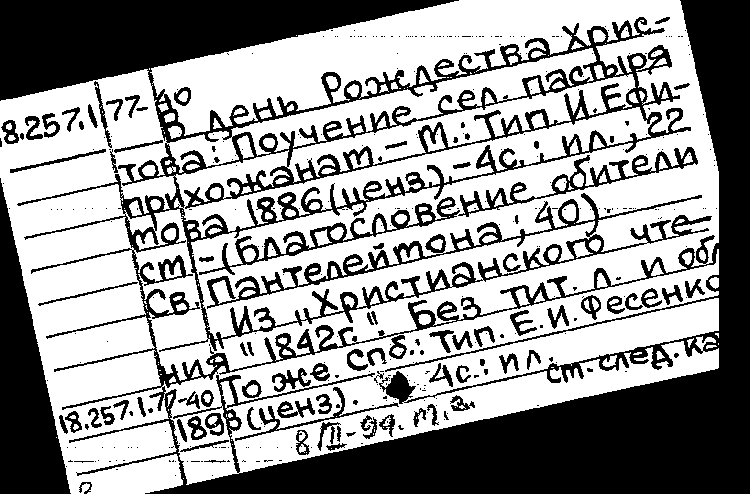 18.257.1.77-40 В день Рождества Хрис-
това: Поучение сел. пастыря
прихожанам.- М.: Тип. И.Ефи-
мова, 1886 (ценз.).-4с.: ил.; 22
см.-(Благословение обители
Св. Пантелеймона; 40).
„Из „Христианского чте-
ния" 1842г.". Без тит. л. и обл
18.257.1.77-40 То же. Спб.: Тип. Е.И.Фесенко
1898 (ценз.). 4с.: ил.
см.след.ка
8/III-94. М.З.